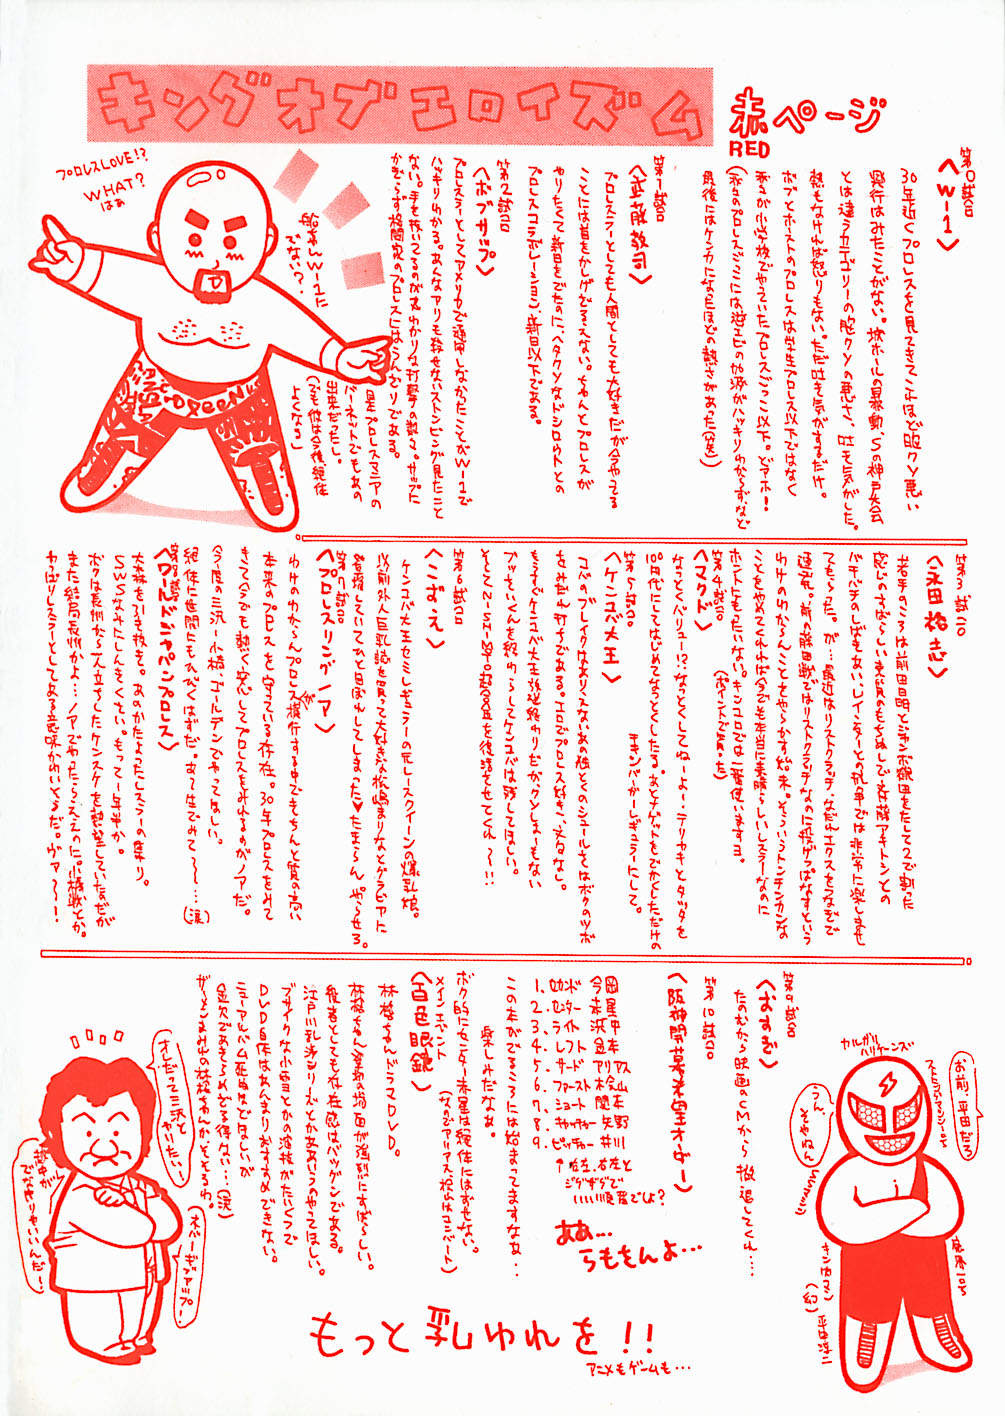 キングオブエロイズム
赤ページ
RED
第0試合
〈W-1〉
30年近くプロレスを見てきてこれほど胸クソ悪い
興行はみたことがない。城ホールの暴動、Sの神戸大会
とは違うカテゴリーの胸クソの悪さ、吐き気がした。
熱もなければ怒りもない。ただ吐き気がするだけ。
ボブとホーストのプロレスは学生プロレス以下ではなく
我々が小学校でやっていたプロレスごっこ以下。どアホ!
(我々のプロレスごっこには逆エビの加減がハッキリわからず、など
最後にはケンカになるほどの熱さがあった(笑)
第1試合
〈武藤敬司〉
プロレスラーとしても人間としても大好きだが今やってる
ことには首をかしげざるえない。ちゃんとプロレスが
やりたくて新日をでたのに、ヘタクソなドシロウトとの
プロレスコラボレーション。新日以下である。
第2試合
〈ボブサップ〉
プロレスラーとしてアメリカで通用しなかったことがW-1で
ハッキリわかる。あんなアリも殺せないストンピング見たこと
ない。手を抜いてるのが丸わかりな打撃の数々。サップに
かぎらず格闘家のプロレスにはうんざりである。
(是非プロレスマニアの
バーネットでもあの
出来だったし。
(でも彼は今後絶住
よくなる)
プロレスLOVE!?
WHAT?
はぁ
船木んW-1に
でない?
第3試合
〈永田裕志〉
若手のころは前田日明とジャンボ鶴田をたして2で割った
感じのすばらしい素質のもちぬしで、斉藤アキトシとの
バチバチのしばきあい、レインジャーとの抗争では非常に楽しませ
てもらった。が…最近はリストクラッチ、なだれエクスをつなぎで
連発。前の藤田戦ではリストクラッチなのに投げっぱなすという
わけのわからんことをやらかす始末。そういうトンチンカンな
ことをやめてくれれば今でも本当に素晴らしいレスラーなのに
ホントにもったいない。キンエロでは一番使いますヨ。
(ポイントで買った)
第4試合
〈マクド〉
なっとくバリュー!?なっとくしてねーよ…テリヤキとタツタを
100円代にしてはじめてなっとくしたる。あとナゲットをでかくしただけの
チキンバーガーレギュラーにして。
第5試合
〈ケンコバ大王〉
コバのブレイクはまちがいないあの独とくのシュールさとはボクのツボ
をみだれ打ちである。エロでプロレス好き、文句なし。
もうすぐケンコバ大王放送終わりだがクソしょーもない
ブッさいくんを終わらしてケンコバは残してほしい。
そしてN-SHOT超合金を復活させてくれ〜!!!
第6試合
〈こずえ〉
ケンコバ大王セミレギュラーの元レースクィーンの爆乳娘。
以前外人巨乳誌を買って大好きな松嶋まりなとグラビアに
登場していてひと目ぼれしてしまった♥たまら〜ん。やらせろ。
第7試合
〈プロレスリング ノア〉
わけのわからんプロレスが横行する中でもちゃんと質の高い
本来のプロレスを守っている存在。30年プロレスをみて
きて今でも熱く安心してプロレスをみれるのがノアだ。
今度の三沢-小橋、ゴールデンでやってほしい。
絶体に世間にもひびくはずだ。あー生でみて〜〜…(涙)
第8試合
〈ワールドジャパンプロレス〉
大森を引き抜き。あのかたよったレスラーの集り。
SWSなみにしんきくさい。もって一年半か。
ボクは長州から一人立ちしたケンスケを熱望していたのだが
また結局長州かよ…ノアでやったらええのに。小橋戦とか。
やっぱりレスラーとしてある意味かわいくなる。ヴァ〜〜!
第9試合
〈おすぎ〉
たのむから映画のCMから撤退してくれ……
第10試合
〈阪神開幕希望オーダー〉
1. セカンド 今岡
2. センター 赤星
3. ライト 浜中
4. レフト 金本
5. サード アリアス
6. ファースト 桧山
7. ショート 関本
8. キャッチャー 矢野
9. ピッチャー 井川
↑右左、右左と
ジグザグで
いい川順番でしょ?
ああ…
らもさんよ…
この本がでるころには始まってますなぁ…
楽しみだなぁ。
ボク的に今岡・赤星は絶体にはずせない。
(なのでアリアス・桧山はコンバート)
メインエベント
〈百色眼鏡〉
林檎ちゃんドラマDVD。
林檎ちゃん登場の場面が強烈にすばらしい。
役者としても存在感はバツグンである。
江戸川乱歩シリーズとかああいうのやってほしい。
ブサイクな小雪とかの演技がたいくつで
DVD自体はあんまりおすすめできない。
ミュージアルバム死ぬほどほしいが
金欠であきらめざるを得ない…(涙)
ザーメンまみれの林檎ちゃんかくそそるわ。
オレだって三沢と
やりたいー!
越中が
でなきゃいいんだー!
ネバーギブアップ!
カルガリー
ハリケーンズ
お前、平田だろ
ストロングマシーン1号
うん、
そやねん
もっと乳ゆれを!!
アニメもゲームも…